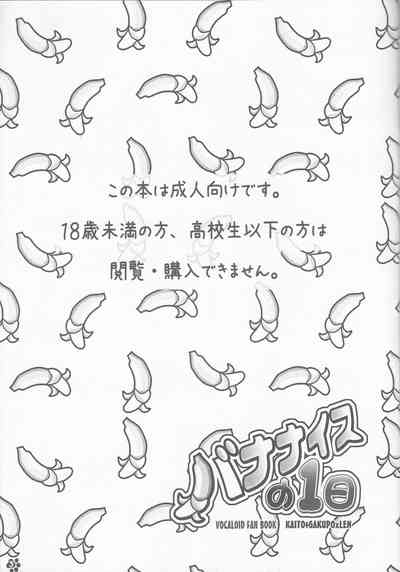 この本は成人向けです。
18歳未満の方、高校生以下の方は
閲覧・購入できません。
バナナイス
の1日
VOCALOID FAN BOOK KAITO+GAKUPOxLEN